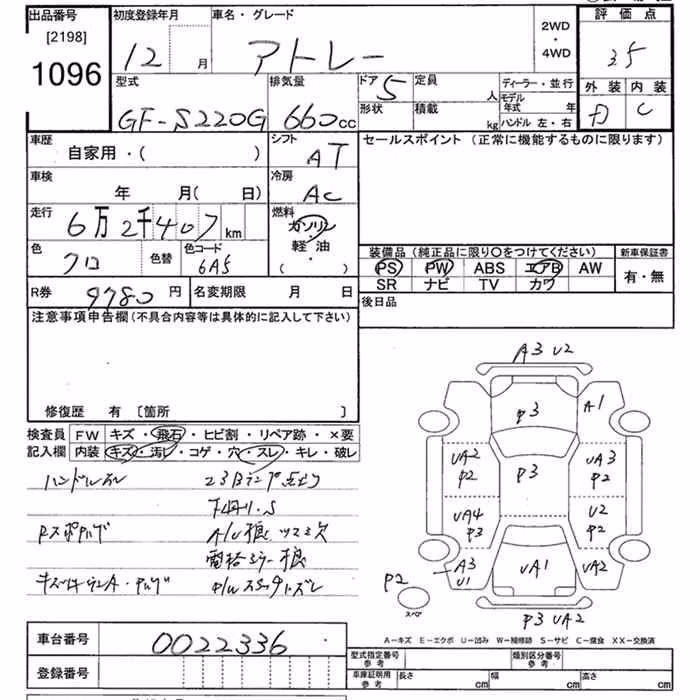 出品番号 初度登録年月 車名・グレード 評価点
[2198] 2WD・4WD
1096 12 月 アトレー 35
型式 排気量 ドア 5 定員 人 ディーラー・並行 外装 内装
GF-S220G 660cc 形状 積載 kg モデル年式 年 D C
ハンドル 左・右
車歴 自家用・( ) シフト AT セールスポイント (正常に機能するものに限ります)
車検 年 月( 日) 冷房 AC
走行 6万2千407 km 燃料 ガソリン
軽油
( ・ )
色 クロ 色替 色コード 6A5 装備品 (純正品に限り〇をつけてください) 新車保証書
PS PW ABS エアB AW 有・無
SR ナビ TV カワ
R券 9780 円 名変期限 月 日 後日品
注意事項申告欄 (不具合内容等は具体的に記入して下さい)
修復歴 有 〔箇所 〕
検査員 FW キズ・飛石・ヒビ割・リペア跡・×要
記入欄 内装 キズ・汚レ・コゲ・穴・スレ・キレ・破レ
ハンドルスレ
下回り.S
A/U
電格ミラー
A3 U2
P3 A1
UA2 P2 P3 UA3 P2
UA4 P3 U2 P2
A3 U1 UA1 UA2
P2
スペア
P3 UA2
A-キズ E-エクボ U-凹み W-補修跡 S-サビ C-腐食 XX-交換済
車台番号 0022336
登録番号
型式指定番号 参考 類別区分番号 参考
車庫証明用 参考 長さ cm 幅 cm 高さ cm